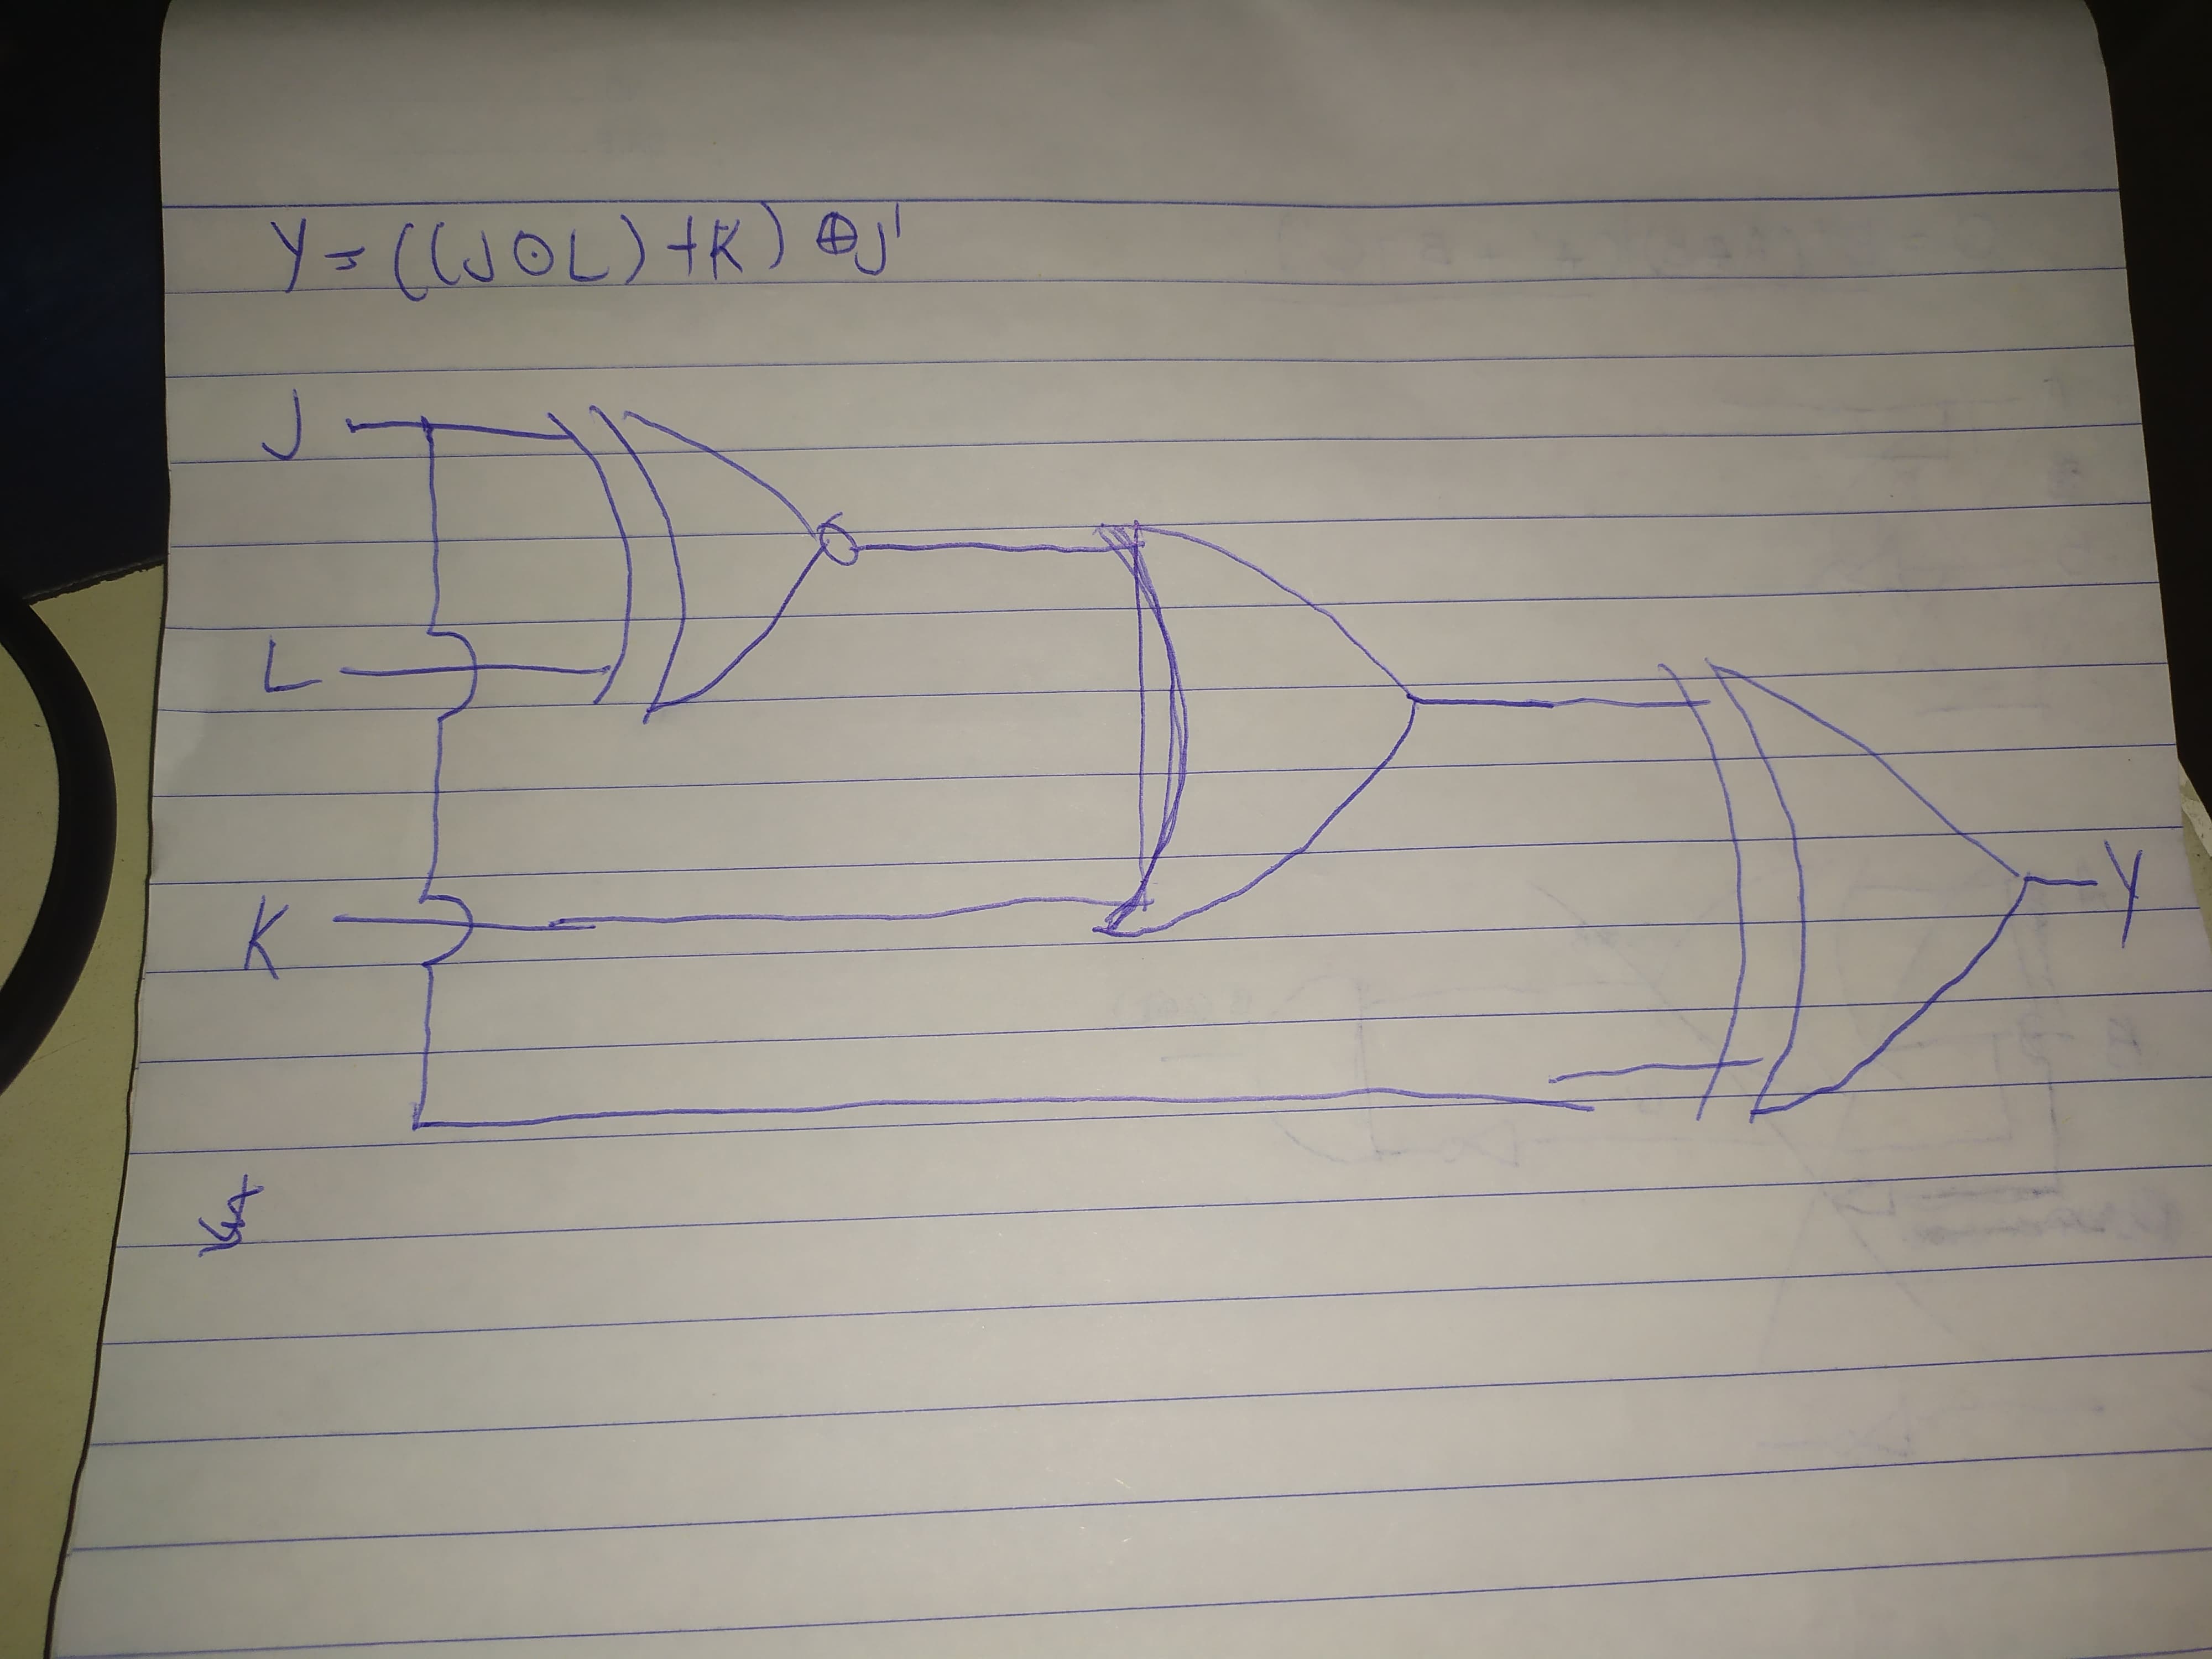 Y = ((J ⊙ L) + K) ⊕ J'
J
L
K
Y